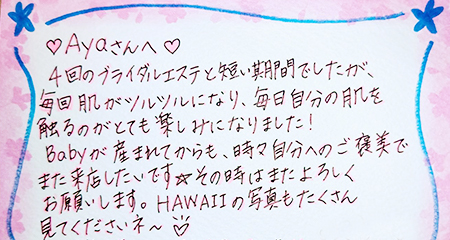 ♡Ayaさんへ♡
4回のブライダルエステと短い期間でしたが、
毎回肌がツルツルになり、毎日自分の肌を
触るのがとても楽しみになりました！
Babyが産まれてからも、時々自分へのご褒美で
また来店したいです☆その時はまたよろしく
お願いします。HAWAIIの写真もたくさん
見てくださいネ〜